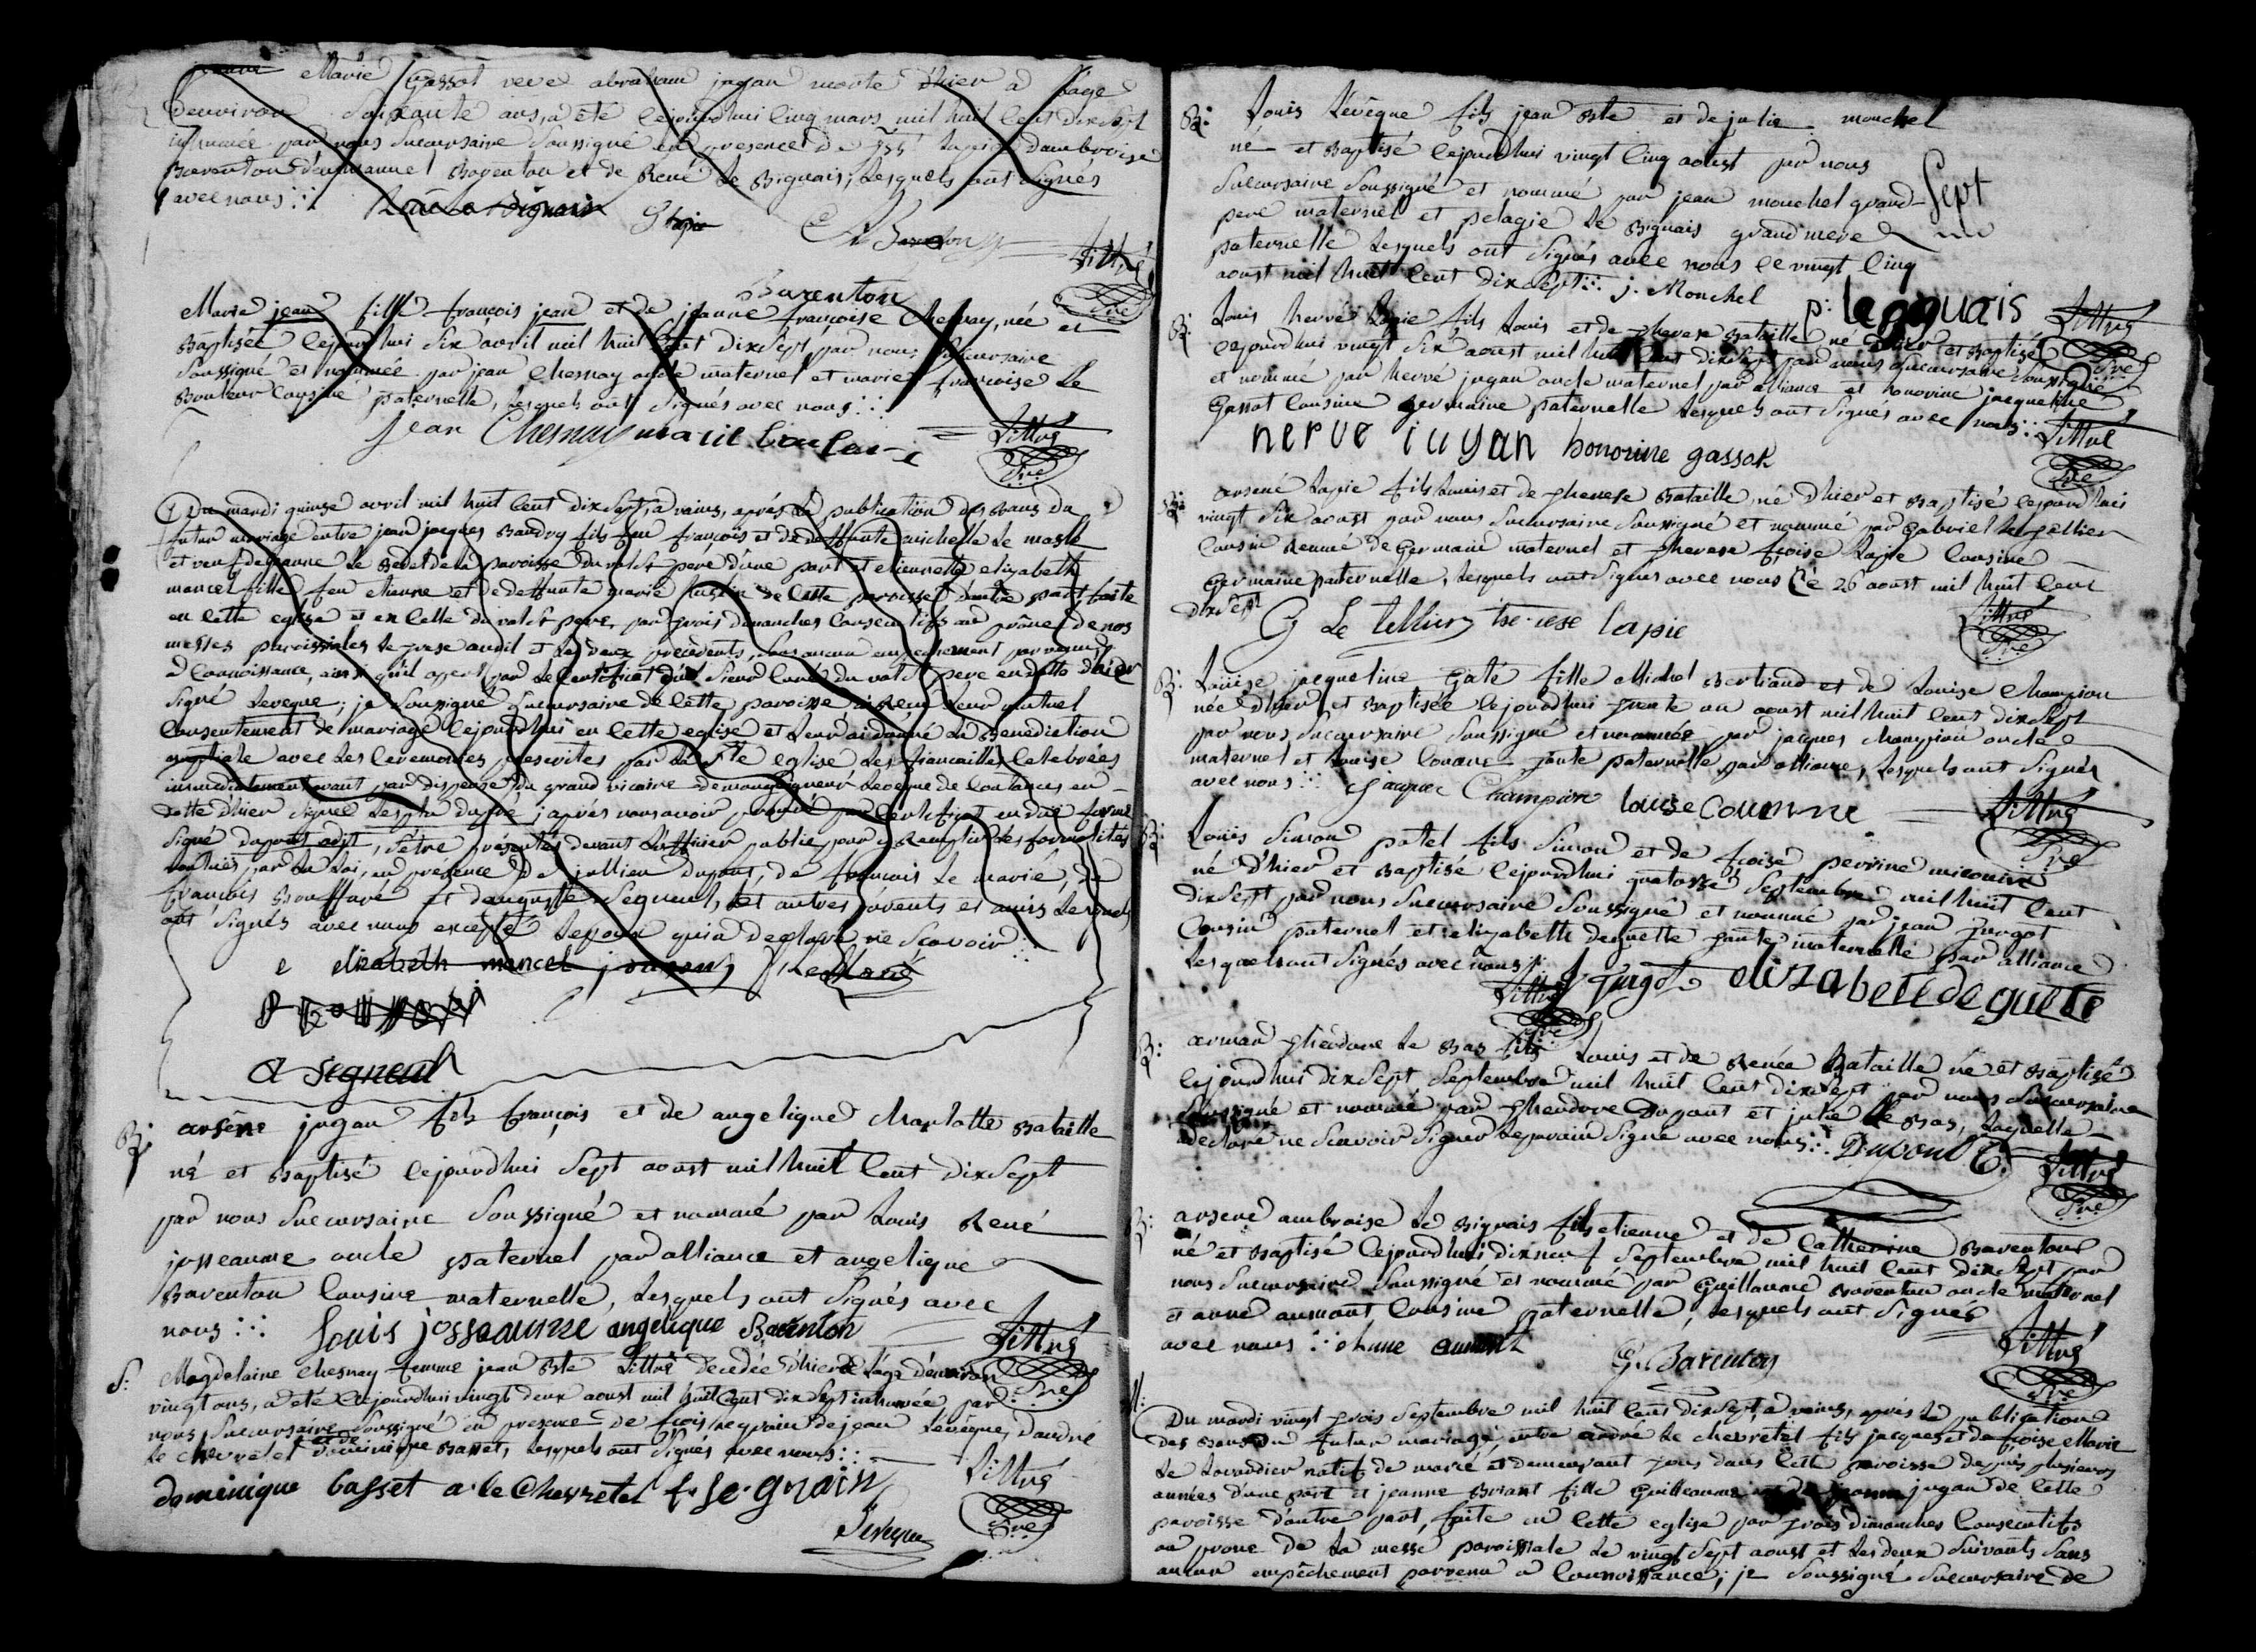 jeanne Marie Gassot veve abraham jugan morte d'hier a l'age
denviron Soixante ans, a été cejourdhui cinq mars mil huit cent dix Sept
inhumée par nous Succursaire Soussigné en presence de lapie d'ambroise
Barenton d'emmanuel Barenton et de René Le Biguais, lesquels ont signés
avec nous :·: René Le Biguais G lapie Barenton Littré
pre
Barenton
Marie jean fille françois jean et de jeanne françoise Chesnay, née et
Baptisée cejourdhui Six avril mil huit Cent dixSept par nous Succursaire
Soussigné et nommée par jean Chesnay oncle maternel et marie françoise Le
Bouleur Cousine paternelle, lesquels ont Signés avec nous :·:
jean Chesnay marie Littré
pre
Du mardi quinze avril mil huit Cent dix Sept, a vains, après la publication des Bans du
futur mariage entre jean jacques Baudry fils feu françois et de deffunte michelle Le masle
et veuf de jeanne Le Bedel de la paroisse du val St pere d'une part et etiennette elizabeth
mancel fille feu etienne et de deffunte marie de cette paroisse d'autre part faite
en cette eglise et en celle du val St pere, par trois dimanches Consecutifs au prône de nos
messes paroissiales le treze audit et les deux précédents, Sans aucun empechement parvenu
a Connoissance, ainsi qu'il apert par le Certificat du Sieur Curé du val St pere en datte d'hier
Signé Leveque; je Soussigné Succursaire de cette paroisse ai Reçu leur mutuel
Consentement de mariage cejourdhui en cette eglise et leur ai donné la Benediction
nuptiale avec les Ceremonies prescrites par la Ste eglise les fiancailles Celebrées
immediatement avant par dispense du grand vicaire de monseigneur Leveque de Coutances en
datte d'hier Signée après nous avoir prouvé par Certificat en due forme
Signé dupont adjt, S'être présentés devant L'officier public pour y Remplir les formalités
voulues par la loi, en présence de jullien dupont, de françois Le marié, de
françois Bouffaré et d'auguste Segneul, et autres parents et amis lesquels
ont Signés avec nous excepté L'epoux qui a declaré ne Scavoir :·:
e elizabeth mancel j dupont f le Marié
A Segneul
B: arsène jugan fils françois et de angelique Charlotte Bataille
né et Baptisé cejourdhui Sept aoust mil huit Cent dixSept
par nous Succursaire Soussigné et nommé par Louis René
josseaume oncle paternel par alliance et angelique
Barenton Cousine maternelle, lesquels ont Signés avec
nous :·: Louis josseaume angelique Barenton Littré
pre
S: Magdelaine Chesnay femme jean Bste Littré decedée d'hier a l'age d'environ
vingt ans, a été cejourdhui vingt deux aoust mil huit Cent dix Sept inhumée par
nous Succursaire Soussigné en presence de fçois Legrain de jean Lévêque, d'andré
le chevretel et de dominique Basset, lesquels ont Signés avec nous :·:
dominique basset a le Chevretel f. le grain Littré
Leveque pre
B: Louis Lévêque fils jean Bste et de julie mouchel
né et Baptisé cejourdhui vingt Cinq aoust par nous
Succursaire Soussigné et nommé par jean mouchel grand-
pere maternel et pelagie Le Biguais grand mere
Sept
paternelle lesquels ont Signés avec nous ce vingt Cinq
aoust mil huit Cent dix Sept :·: j. Mouchel p: le biguais Littré
pre
B: Louis hervé Lapie fils Louis et de therese Bataille, né d'hier et Baptisé
cejourdhui vingt Six aoust mil huit Cent dixSept par nous Succursaire Soussigné
et nommé par hervé jugan oncle maternel par alliance et honorine jacqueline
Gassot Cousine germaine paternelle lesquels ont Signés avec nous :·: Littré
herve iugan honorine gassot pre
B: arsene Lapie fils Louis et de therese Bataille, né d'hier et Baptisé cejourdhui
vingt Six aoust par nous Succursaire Soussigné et nommé par Gabriel Le tellier
Cousin Remué de Germain maternel et therese fçoise Lapie Cousine
Germaine paternelle, lesquels ont Signés avec nous Ce 26 aoust mil huit Cent
dixSept Littré
G Le tellier therese lapie pre
B: Louise jacqueline Gaté fille Michel Bertrand et de Louise Champion
née d'hier et Baptisée cejourdhui trente un aoust mil huit Cent dixSept
par nous Succursaire Soussigné et nommée par jacques Champion oncle
maternel et Louise tante paternelle par alliance, lesquels ont Signés
avec nous :·: jacques Champion louise Littré
pre
B: Louis Simon patel fils Simon et de fçoise perrine
né d'hier et Baptisé cejourdhui quatorze Septembre mil huit Cent
dixSept par nous Succursaire Soussigné et nommé par jean Turgot
Cousin paternel et elizabeth deguette tante maternelle par alliance
lesquels ont Signés avec nous :·: J Turgot elizabete deguette
Littré
pre
B: arman theodore Le Bas fils Louis et de Renée Bataille né et Baptisé
cejourdhui dixSept Septembre mil huit Cent dixSept par nous Succursaire
Soussigné et nommé par theodore Dupont et julie Le Bas, laquelle
a declaré ne Scavoir Signer le parain Signé avec nous :·: Dupont t. Littré
pre
B: arsene ambroise Le Biguais fils etienne et de Catherine Barenton
né et Baptisé cejourdhui dixneuf Septembre mil huit Cent dixSept par
nous Succursaire Soussigné et nommé par Guillaume Barenton oncle maternel
et anne aumont Cousine paternelle, lesquels ont Signés
avec nous :·: anne aumont G. Barenton Littré
pre
M: Du mardi vingt trois Septembre mil huit Cent dixSept, a vains, après la publication
des Bans du futur mariage entre andré Le chevretel fils jacques et de fçoise Marie
Le Tavardier natif de marcé et demeurant tous dans cette paroisse depuis plusieurs
années d'une part et jeanne Briant fille Guilleaume et de jeanne jugan de cette
paroisse d'autre part, faite en cette eglise par trois dimanches Consecutifs
au prone de la messe paroissiale Le vingt Sept aoust et les deux Suivants Sans
aucun empêchement parvenu a Connoissance; je Soussigné Succursaire de